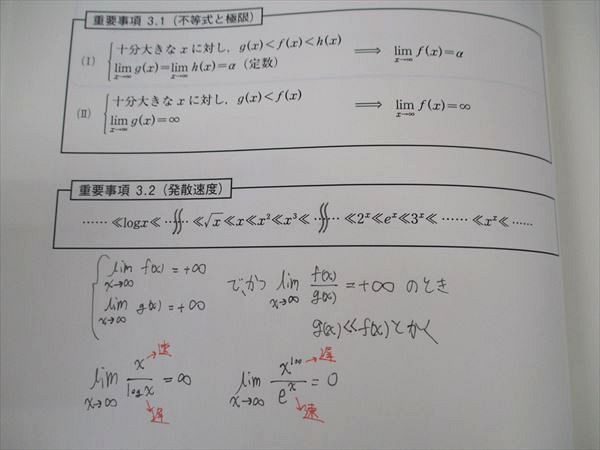 重要事項 3.1（不等式と極限）
(I) { 十分大きな x に対し，g(x)<f(x)<h(x)
lim_{x→∞} g(x)=lim_{x→∞} h(x)=α（定数） ⟹ lim_{x→∞} f(x)=α
(II) { 十分大きな x に対し，g(x)<f(x)
lim_{x→∞} g(x)=∞ ⟹ lim_{x→∞} f(x)=∞
重要事項 3.2（発散速度）
…… ≪logx≪ … ≪√x≪x≪x²≪x³≪ … ≪2ˣ≪eˣ≪3ˣ≪ …… ≪xˣ≪ ……
{ lim_{x→∞} f(x) = +∞
lim_{x→∞} g(x) = +∞ で、かつ lim_{x→∞} f(x)/g(x) = +∞ のとき
g(x)≪f(x)とかく
lim_{x→∞} x/log x = ∞ →速 →遅
lim_{x→∞} x¹⁰⁰/eˣ = 0 →遅 →速